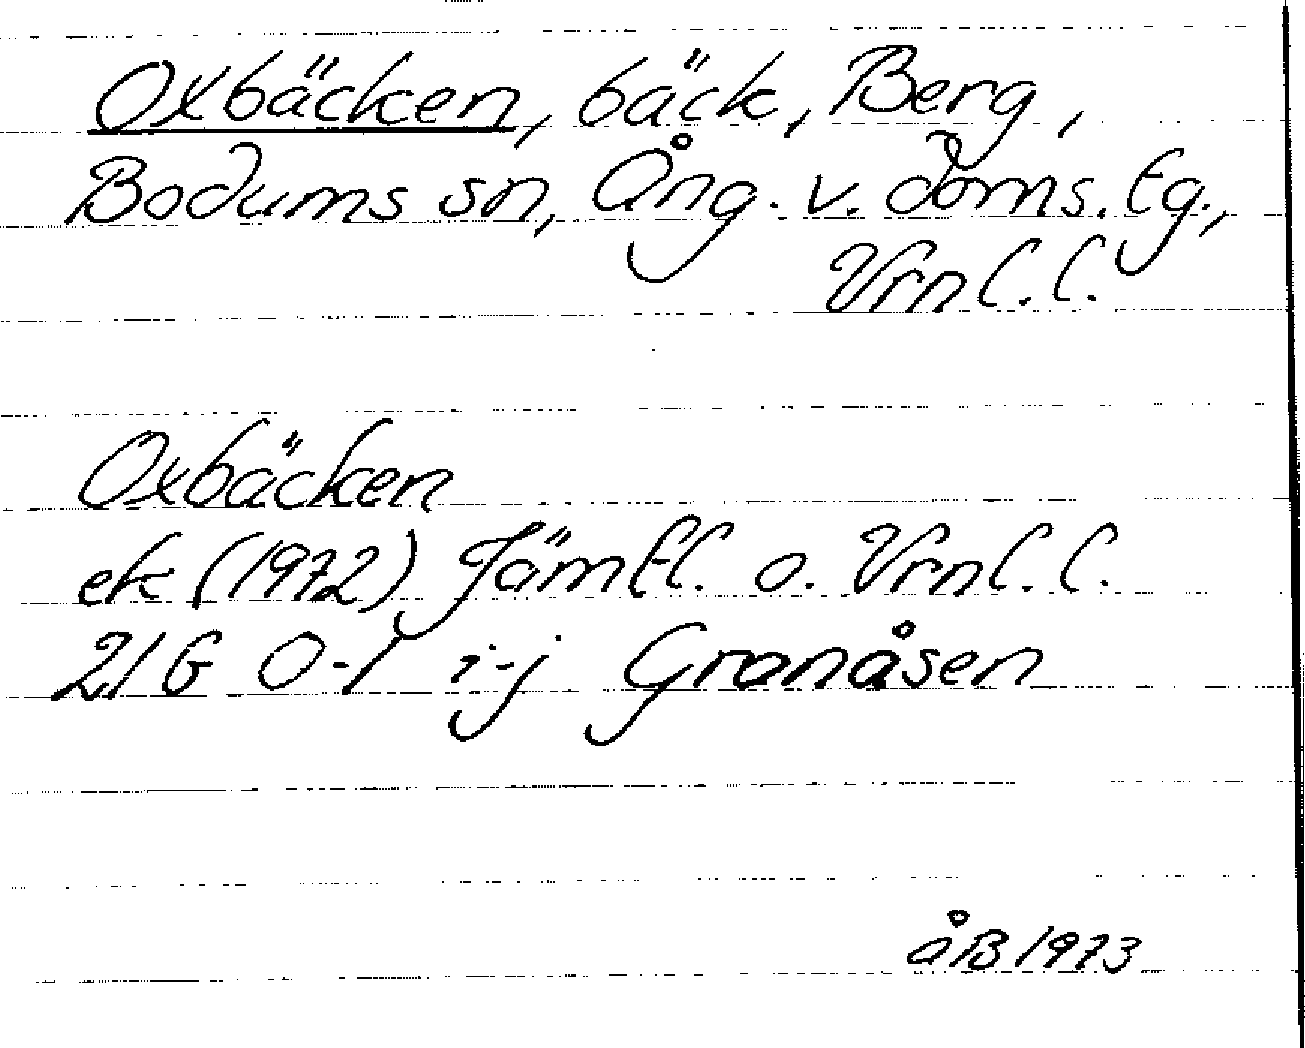 Oxbäcken, bäck, Berg,
Bodums sn, Ång. v. doms. tg.,
Vrnl. l.
Oxbäcken
ek (1972) Jämtl. o. Vrnl. l.
21G 0-1 i-j Granåsen
åB 1973